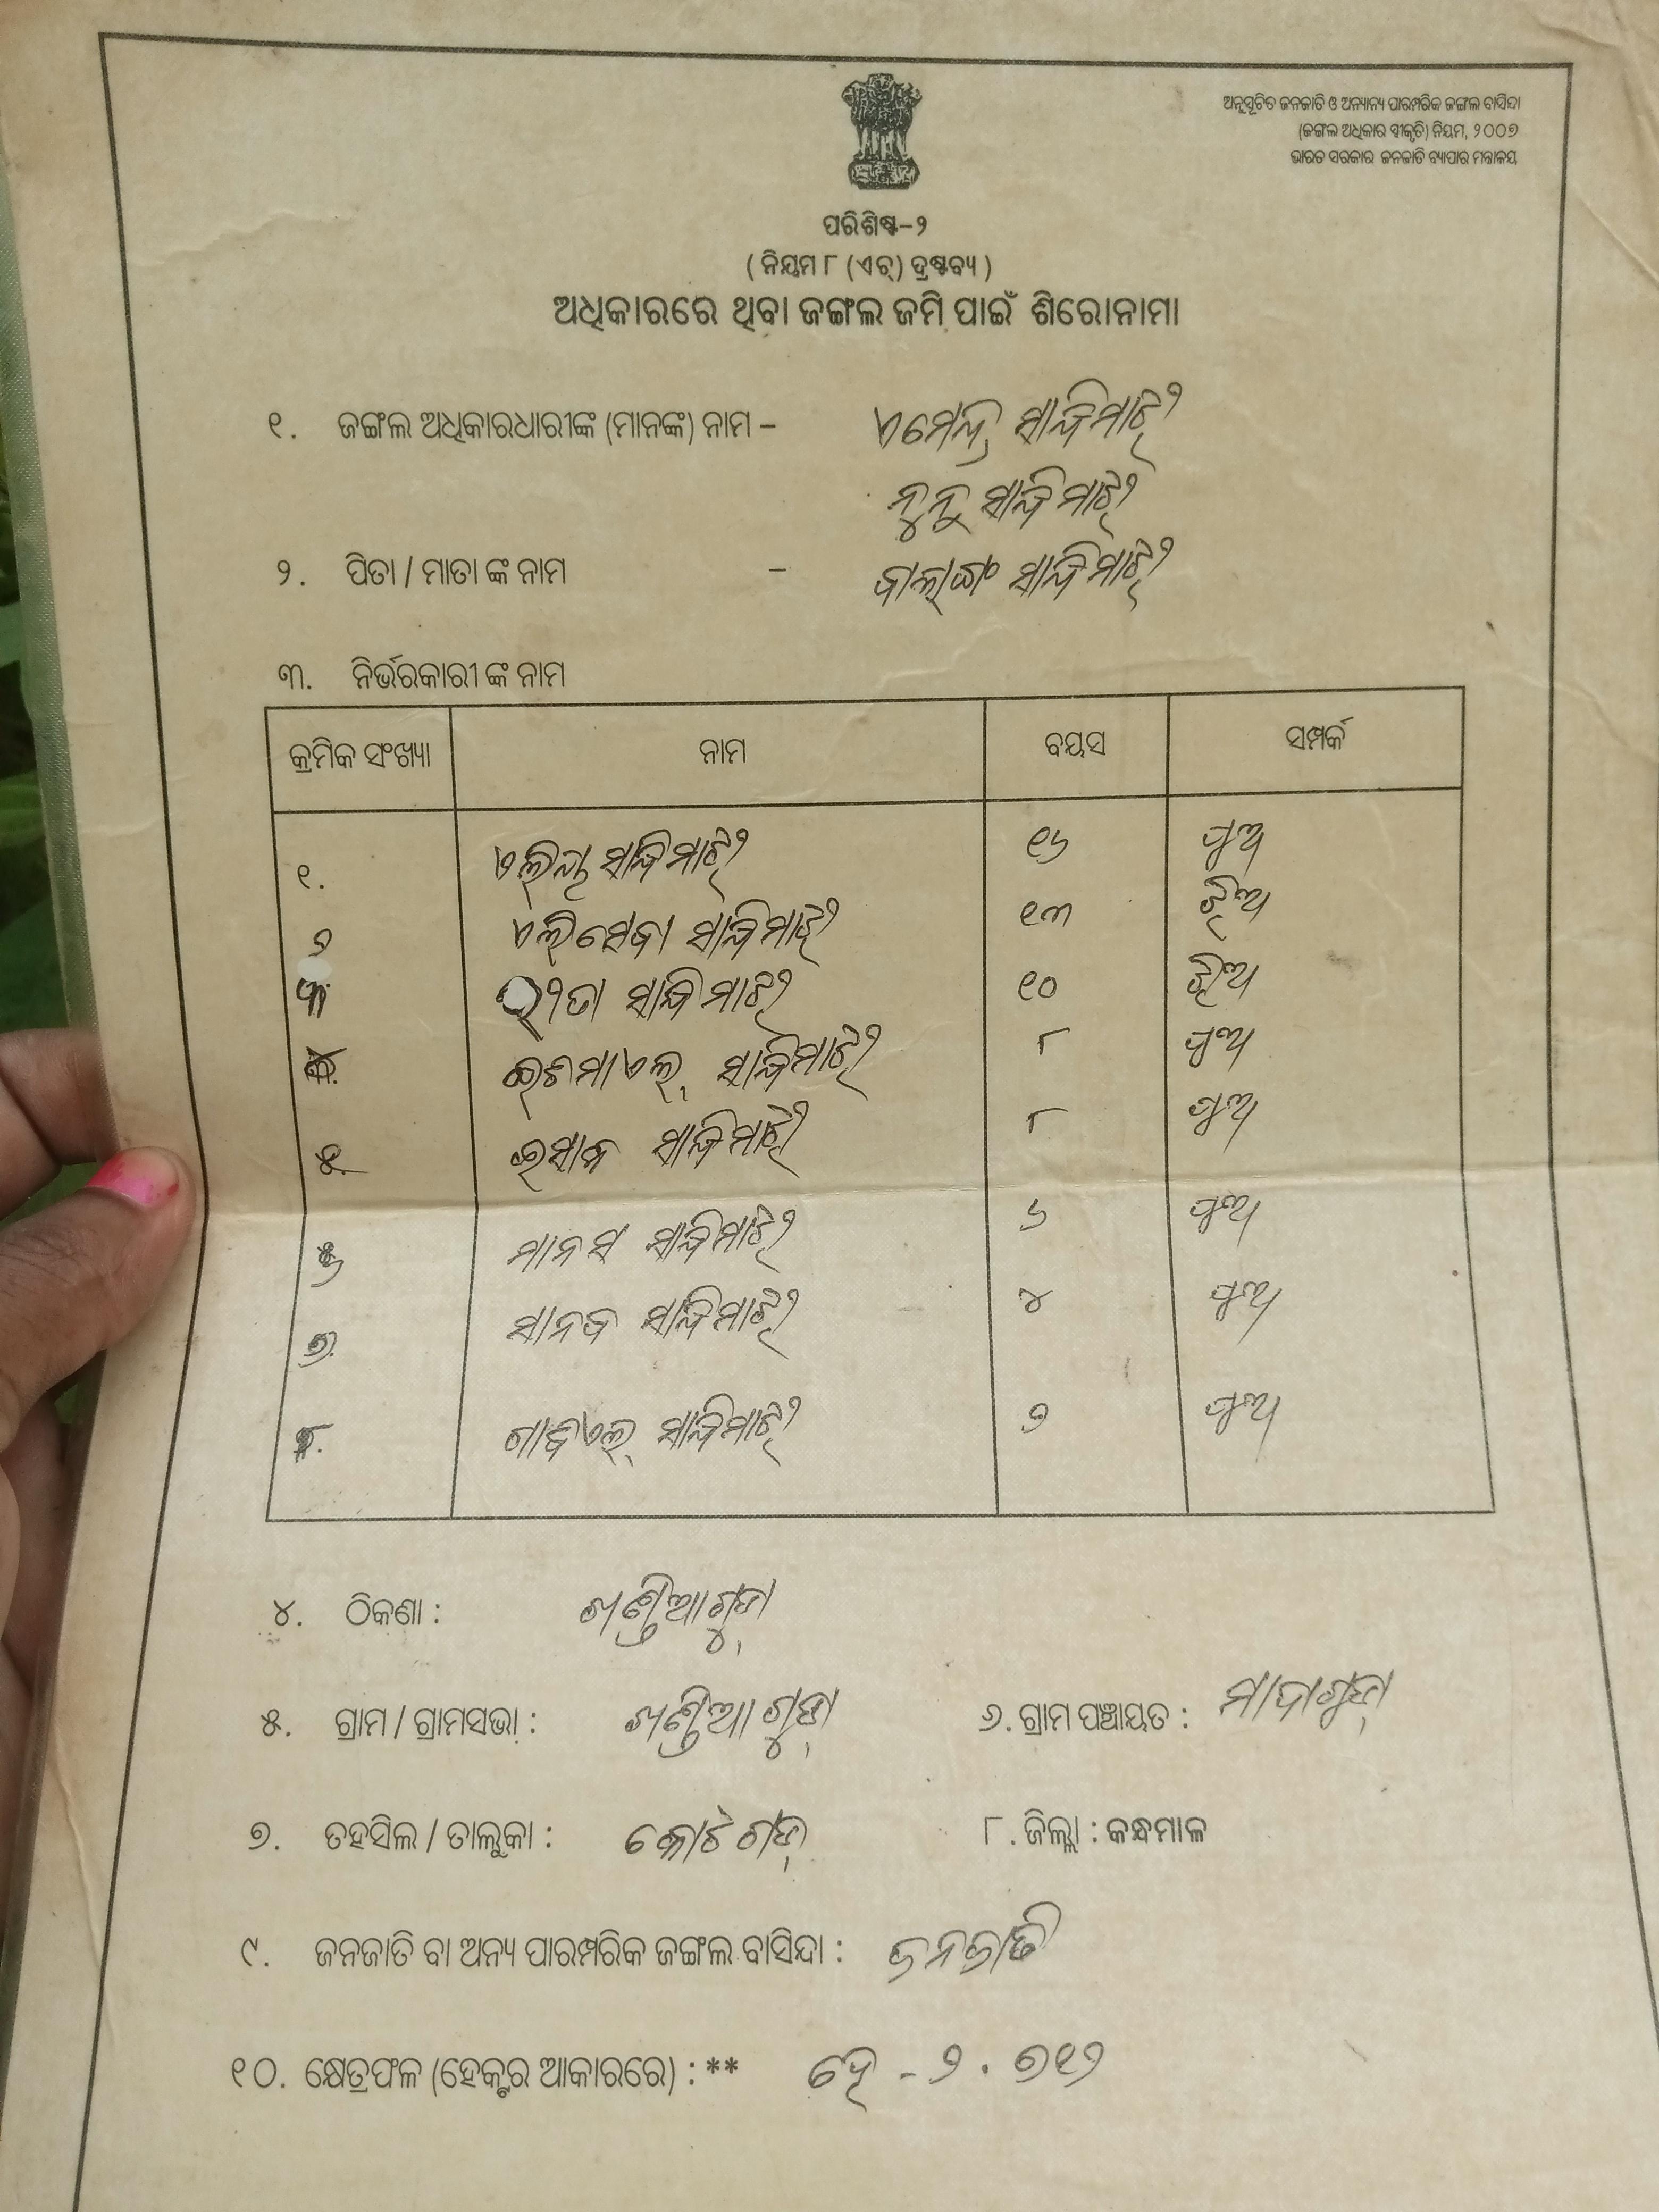 ଅନୁସୂଚିତ ଜନଜାତି ଓ ଅନ୍ୟାନ୍ୟ ପାରମ୍ପରିକ ଜଙ୍ଗଲ ବାସିନ୍ଦା
(ଜଙ୍ଗଲ ଅଧିକାର ସ୍ୱୀକୃତି) ନିୟମ, ୨୦୦୭
ଭାରତ ସରକାର ଜନଜାତି ବ୍ୟାପାର ମନ୍ତ୍ରାଳୟ
ପରିଶିଷ୍ଟ-୨
( ନିୟମ ୮ (ଏଚ୍) ଦ୍ରଷ୍ଟବ୍ୟ )
ଅଧିକାରରେ ଥିବା ଜଙ୍ଗଲ ଜମି ପାଇଁ ଶିରୋନାମା
୧. ଜଙ୍ଗଲ ଅଧିକାରଧାରୀଙ୍କ (ମାନଙ୍କ) ନାମ – ଏମେନ୍ଦ୍ର ସାନ୍ଦିମାଝୀ
ନୁନୁ ସାନ୍ଦିମାଝୀ
୨. ପିତା / ମାତା ଙ୍କ ନାମ – ସାନ୍ଦିମାଝୀ
୩. ନିର୍ଭରକାରୀ ଙ୍କ ନାମ
କ୍ରମିକ ସଂଖ୍ୟା ନାମ ବୟସ ସମ୍ପର୍କ
୧. ସାନ୍ଦିମାଝୀ ୧୬ ପୁଅ
୨ ଏଲିସେବା ସାନ୍ଦିମାଝୀ ୧୩ ଝିଅ
୩. ସାନ୍ଦିମାଝୀ ୧୦ ଝିଅ
୪. ଇଶମାଏଲ୍ ସାନ୍ଦିମାଝୀ ୮ ପୁଅ
୫. ଇସାକ ସାନ୍ଦିମାଝୀ ୮ ପୁଅ
୬ ମାନସ ସାନ୍ଦିମାଝୀ ୬ ପୁଅ
୭. ସାନ୍ଦିମାଝୀ ୪ ପୁଅ
୮. ସାନ୍ଦିମାଝୀ ୨ ପୁଅ
୪. ଠିକଣା : ଖଣ୍ଡିଆଗୁଡ଼ା
୫. ଗ୍ରାମ / ଗ୍ରାମସଭା : ଖଣ୍ଡିଆଗୁଡ଼ା ୬. ଗ୍ରାମ ପଞ୍ଚାୟତ :
୭. ତହସିଲ / ତାଲୁକା : କୋଟଗଡ଼ ୮. ଜିଲ୍ଲା : କନ୍ଧମାଳ
୯. ଜନଜାତି ବା ଅନ୍ୟ ପାରମ୍ପରିକ ଜଙ୍ଗଲ ବାସିନ୍ଦା : ଜନଜାତି
୧୦. କ୍ଷେତ୍ରଫଳ (ହେକ୍ଟର ଆକାରରେ) : ** ହେ - ୨.୭୧୨